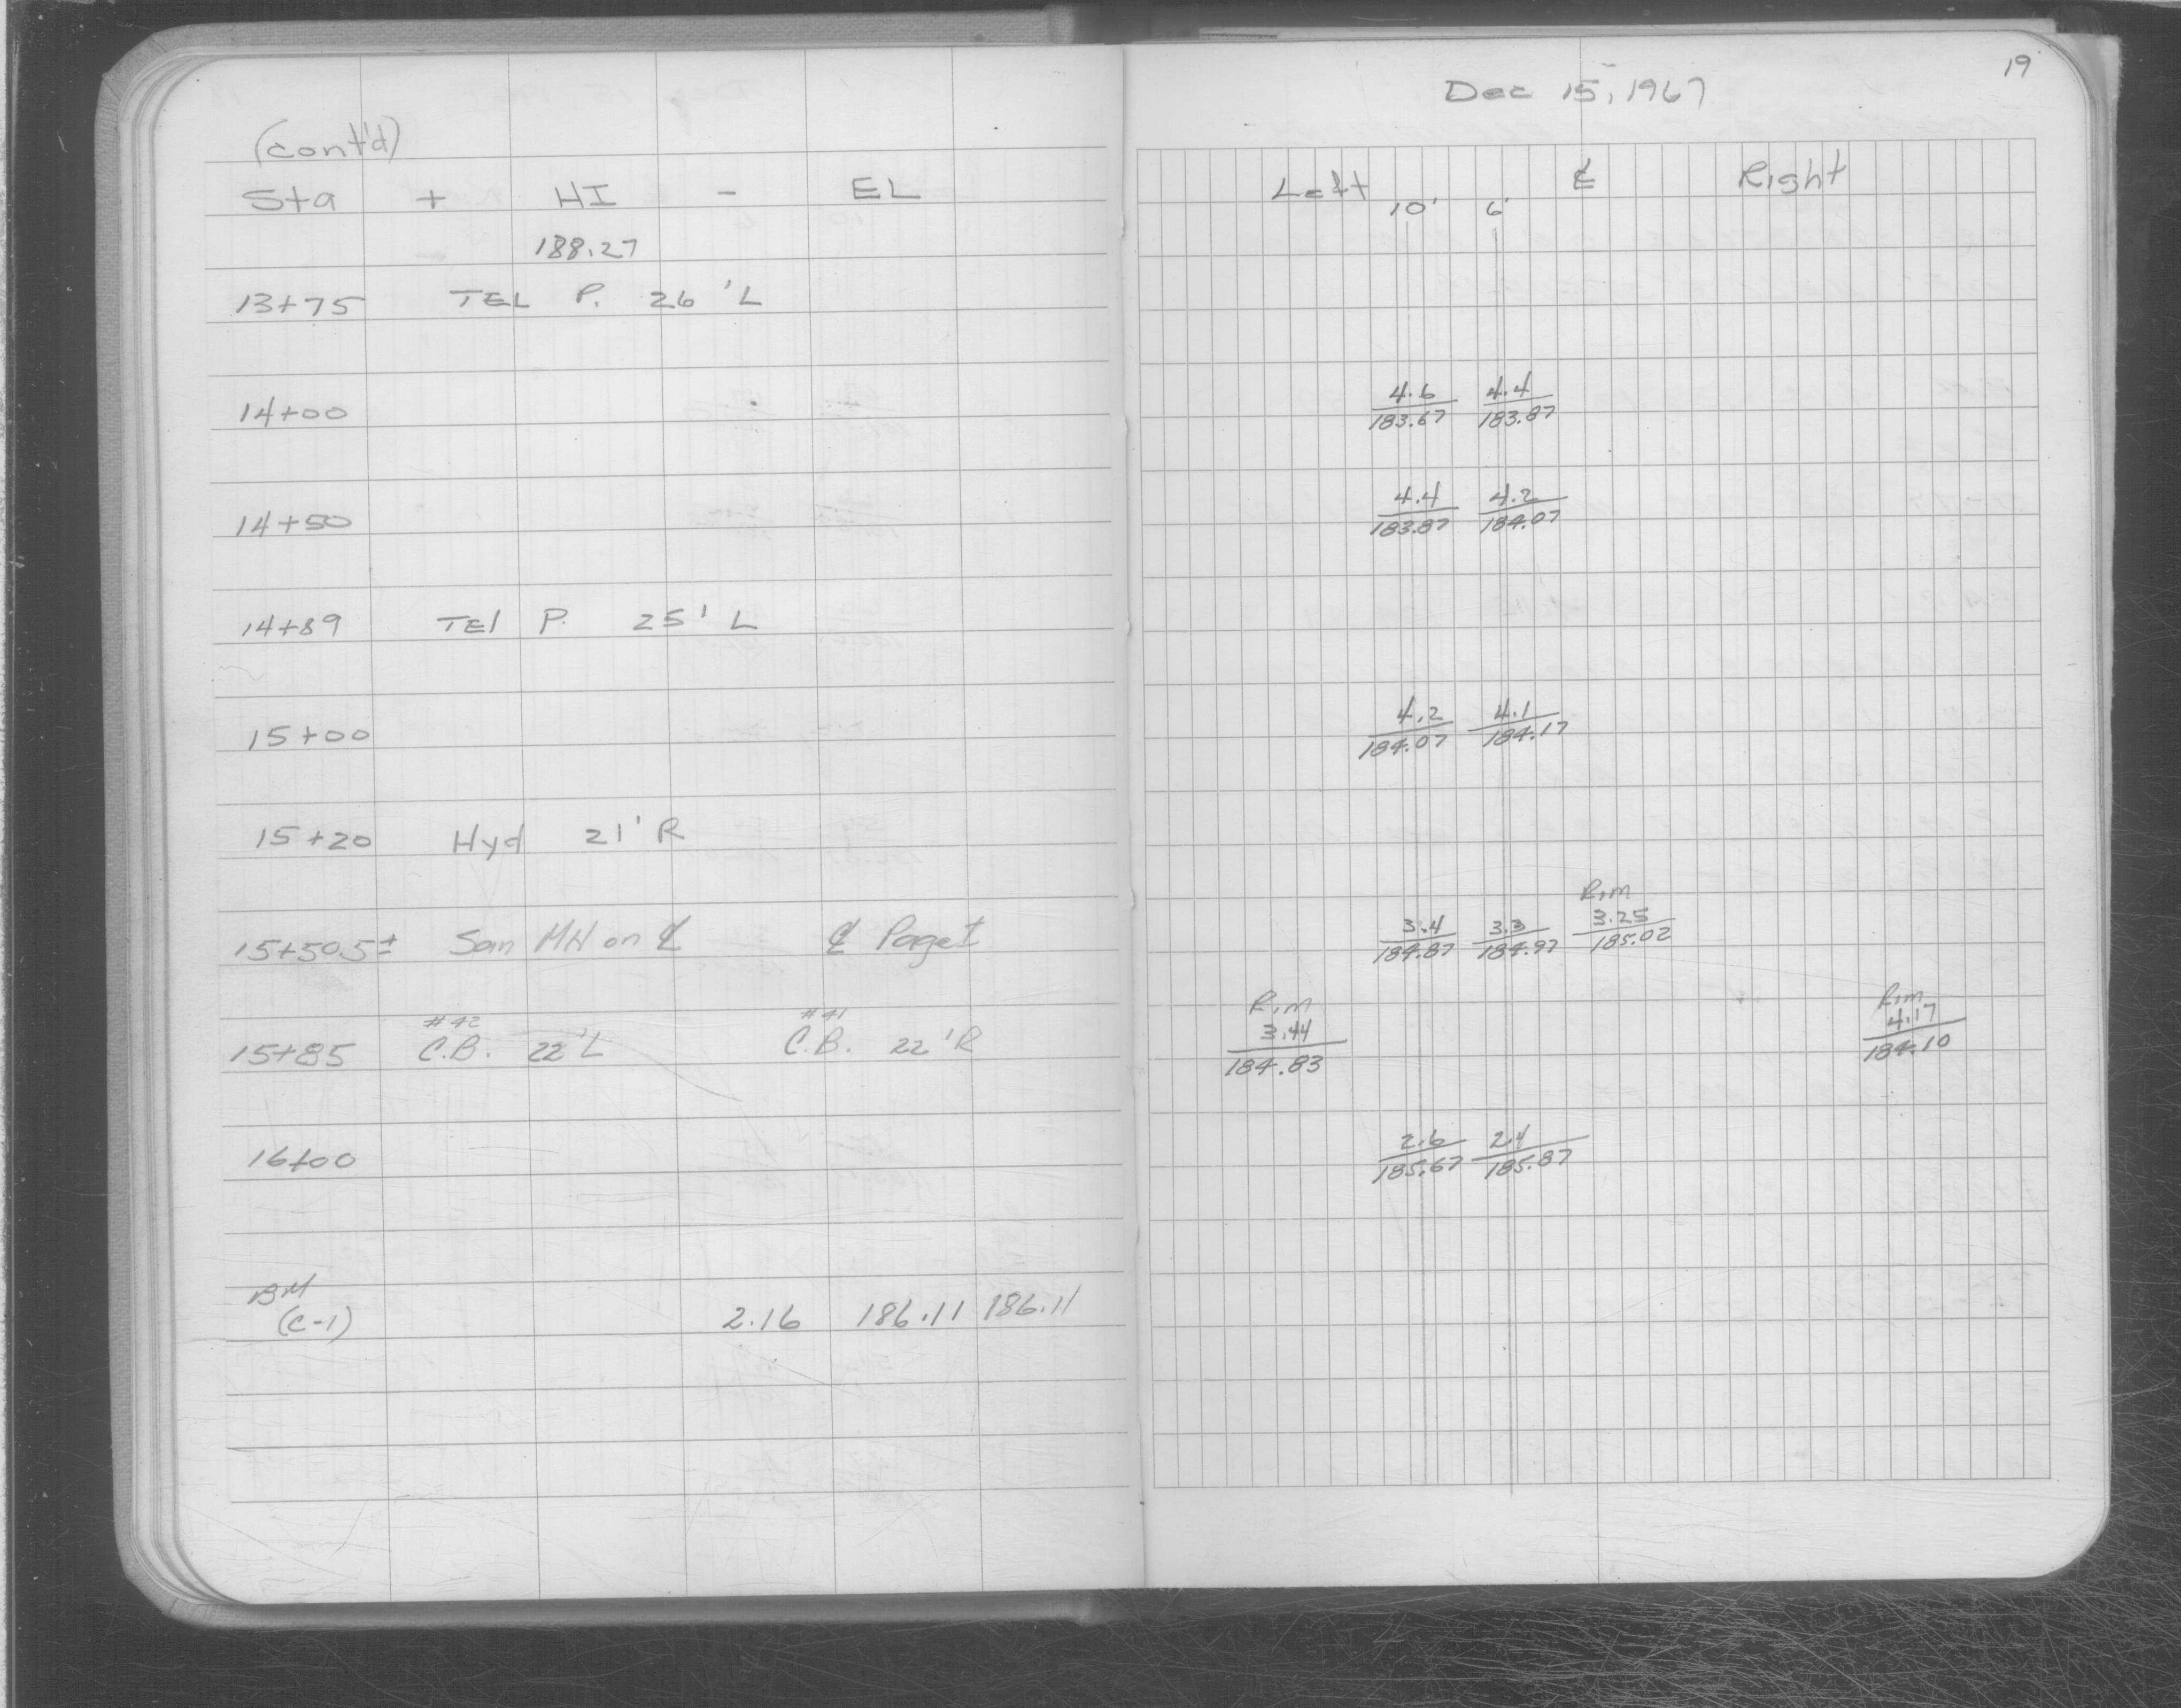 (cont'd)
Sta + HI - EL
188.27
13+75 TEL P. 26'L
14+00
14+50
14+89 TEl P. 25'L
15+00
15+20 Hyd 21'R
15+50.5± San MH on ℄ ℄ Paget
#42 #41
15+85 C.B. 22'L C.B. 22'R
16+00
BM
(C-1) 2.16 186.11 186.11
19
Dec 15, 1967
Left ℄ Right
10' 6'
4.6 4.4
183.67 183.87
4.4 4.2
183.87 184.07
4.2 4.1
184.07 184.17
Rim
3.4 3.3 3.25
184.87 184.97 185.02
Rim Rim
3.44 4.17
184.83 184.10
2.6 2.4
185.67 185.87